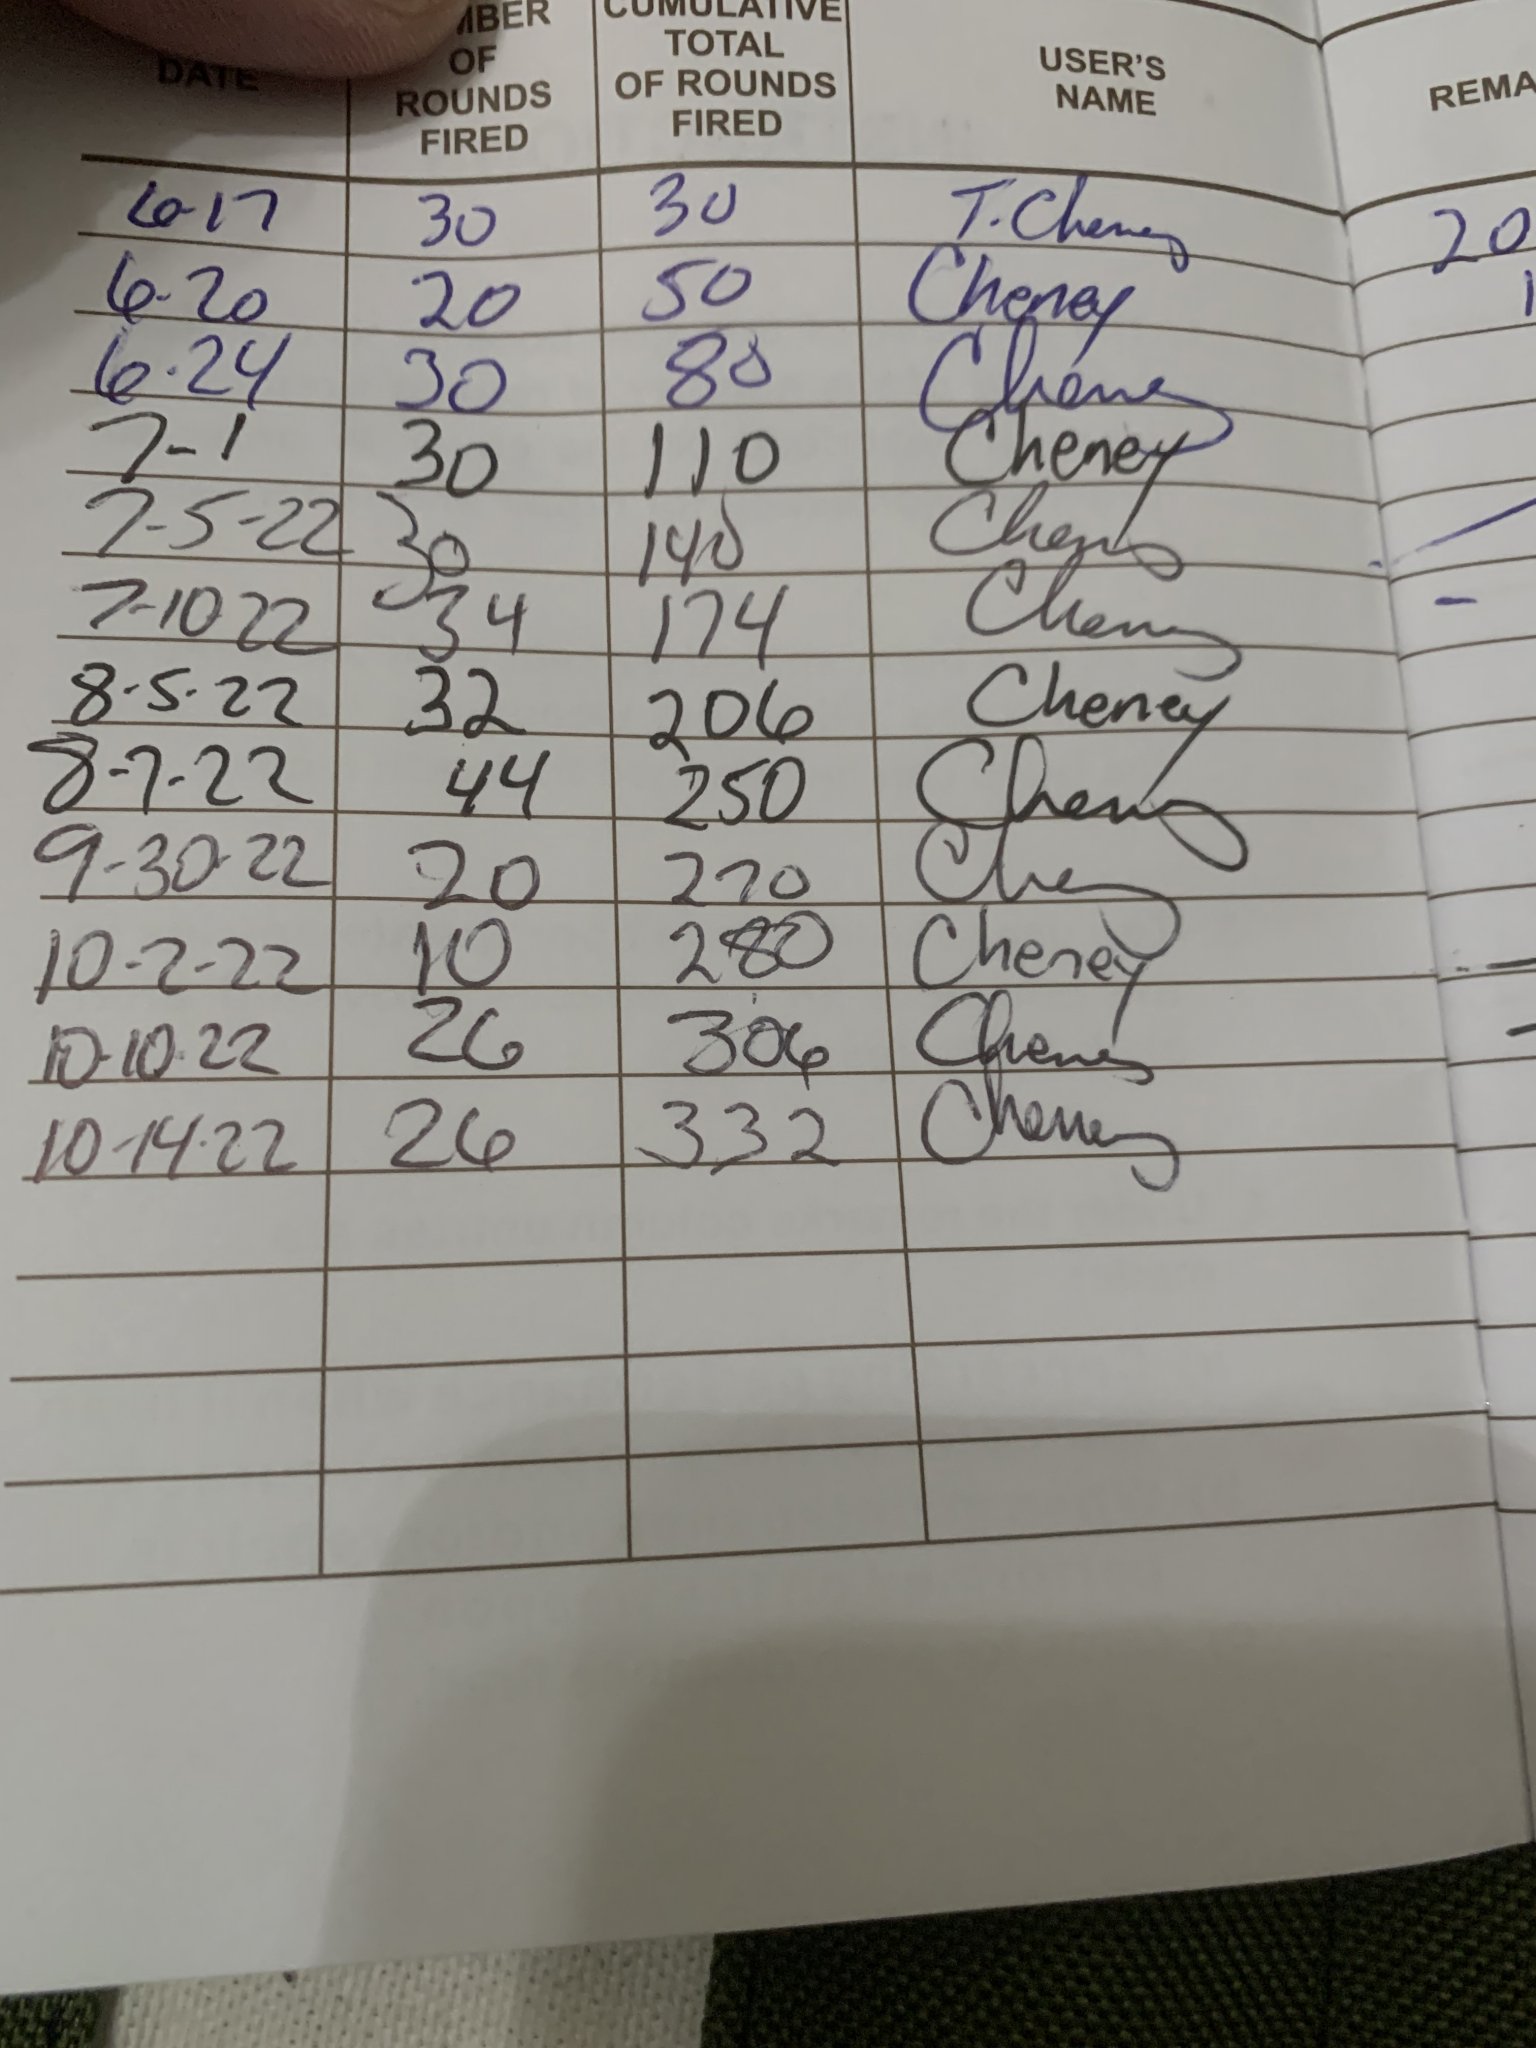 DATE
MBER
OF
ROUNDS
FIRED
CUMULATIVE
TOTAL
OF ROUNDS
FIRED
USER'S
NAME
REMA
6-17 30 30 T. Cheney 20
6-20 20 50 Cheney 1
6-24 30 80 Cheney
7-1 30 110 Cheney
7-5-22 30 140 Cheney
7-10 22 34 174 Cheney -
8-5-22 32 206 Cheney
8-7-22 44 250 Cheney
9-30-22 20 270 Cheney
10-2-22 10 280 Cheney
10-10-22 26 306 Cheney
10-14-22 26 332 Cheney